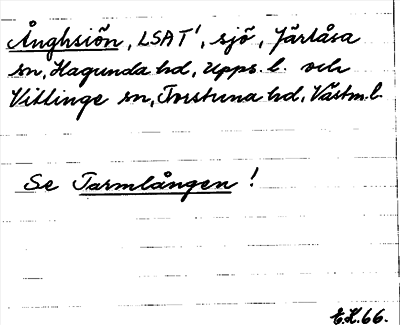 Ånghsiön, LSAT', sjö, Järlåsa
sn, Hagunda hd, Upps. l. och
Vittinge sn, Torstuna hd, Västm. l.
Se Tarmlången!
E.H. 66.